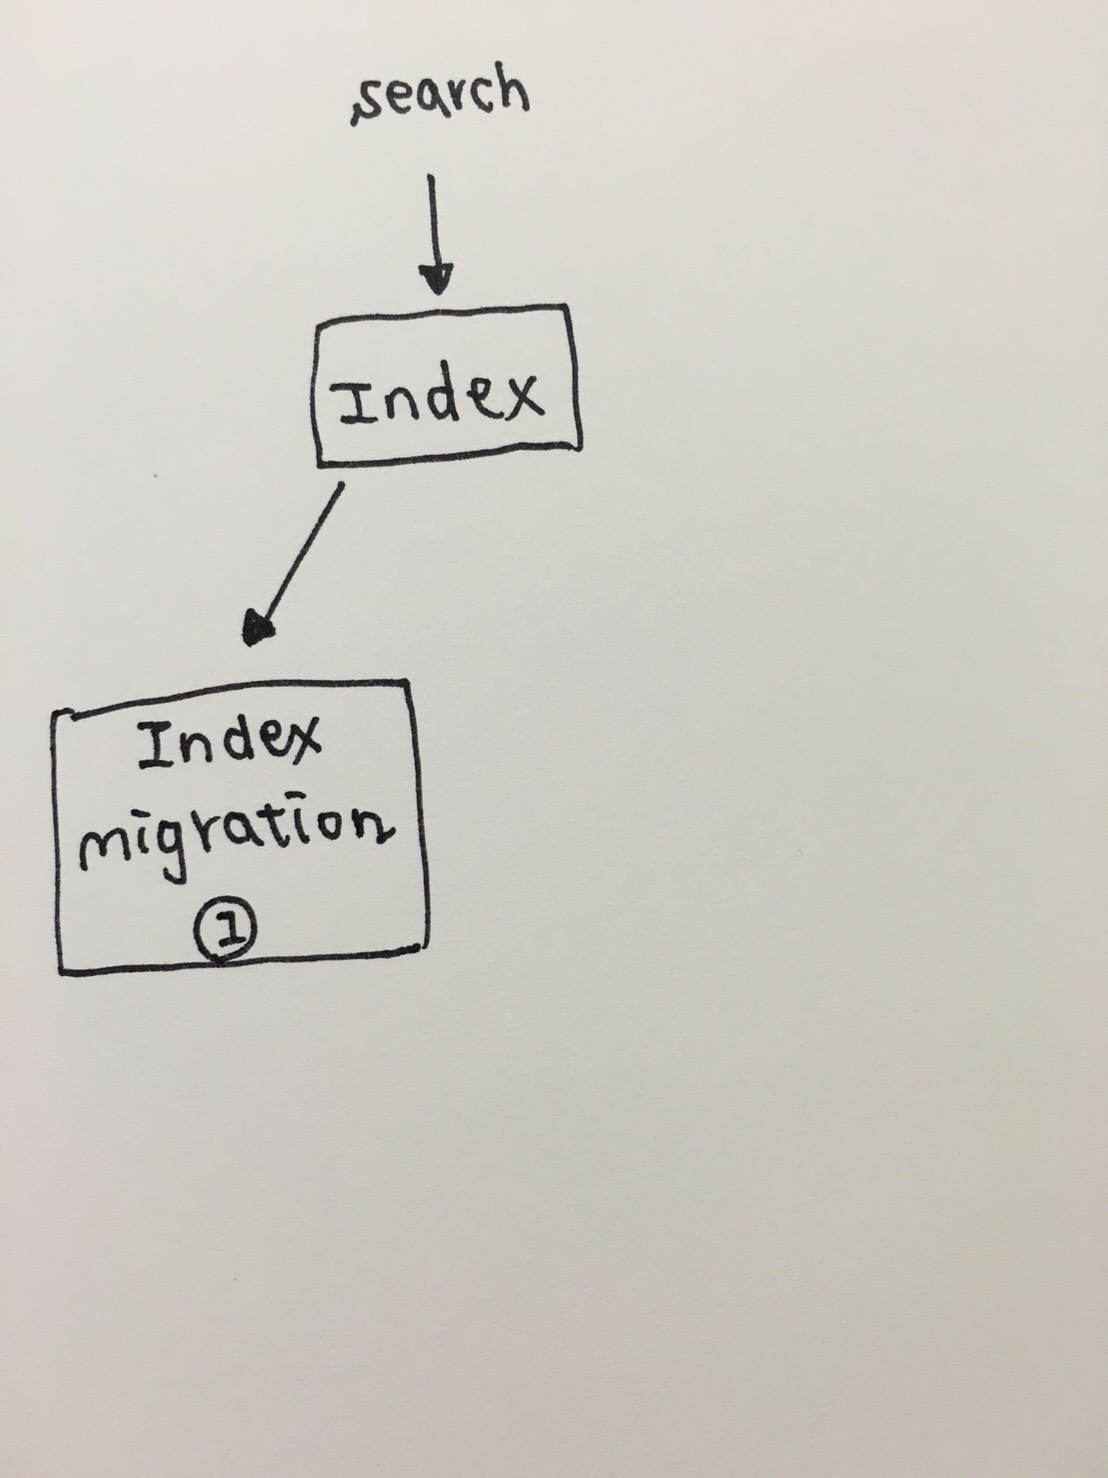 search
Index
Index
migration
①